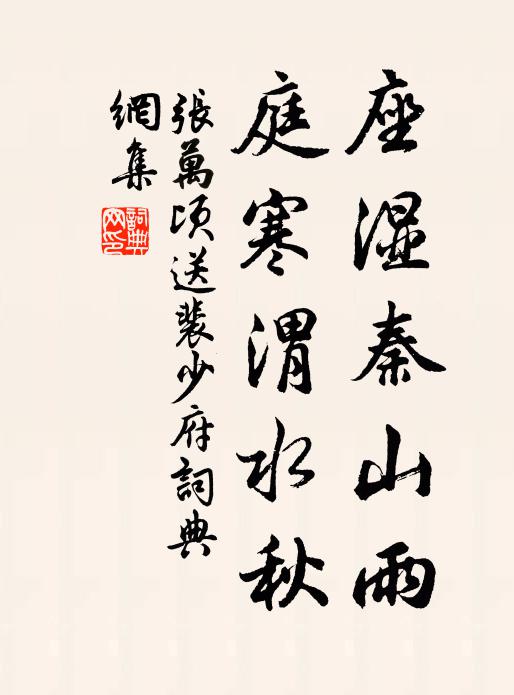 座湿秦山雨
庭寒渭水秋
張萬頃送裴少府詞典
網集
詞典
网印